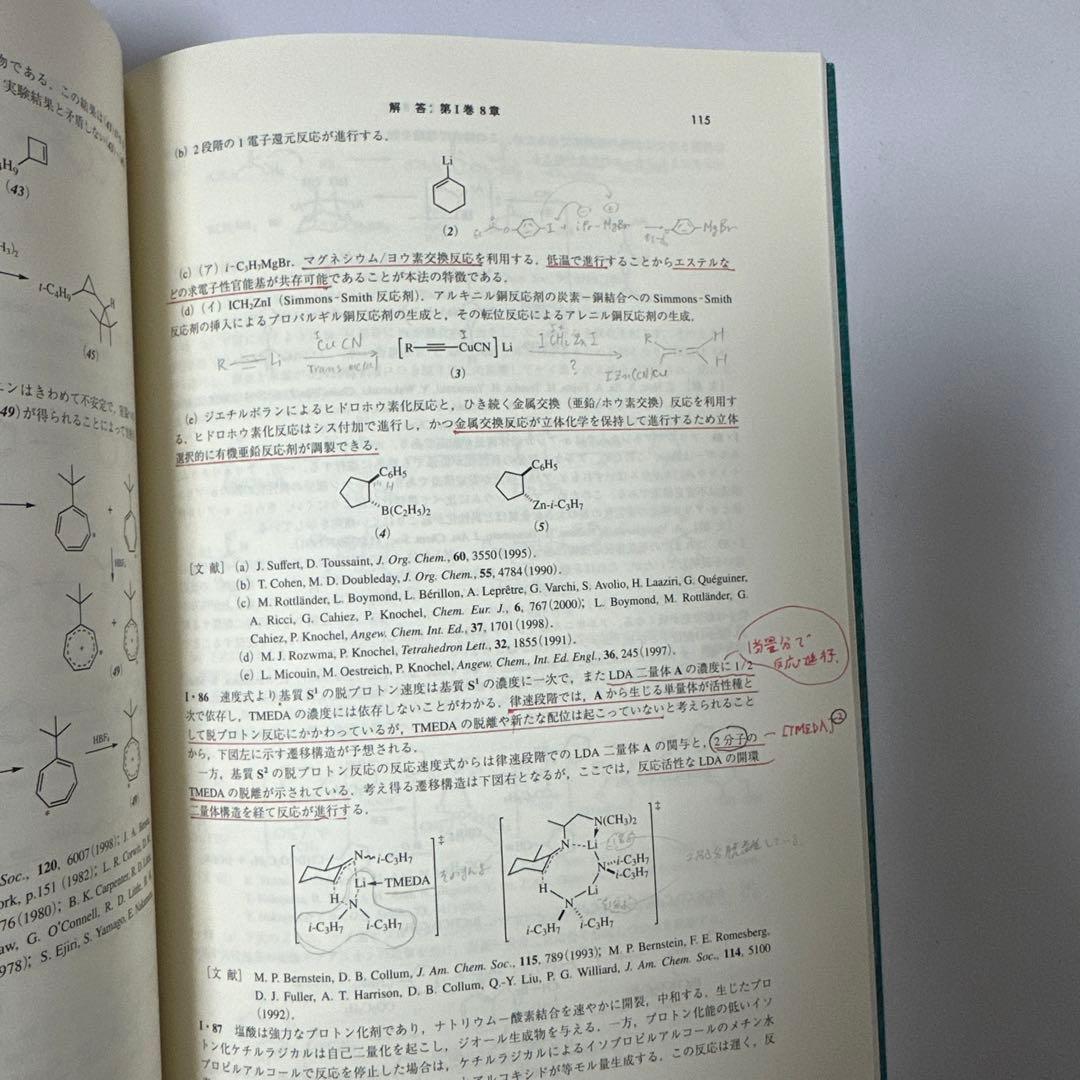 物である．この結果は
実験結果と矛盾しない
(43)
i-C₄H₉
H
(45)
エンはきわめて不安定で，
49) が得られることによって
HBF₄
(49)
HBF₄
(49)
Soc., 120, 6007 (1998); J. A.
ork, p.151 (1982); L. R. Corwin, D. R.
76 (1980); B. K. Carpenter, R. D. Little,
aw, G. O'Connell, R. D. Little,
978); S. Ejiri, S. Yamago, E. Nakamura
解 答：第Ⅰ巻 8章
115
(b) 2段階の1電子還元反応が進行する．
Li
(2)
I + iPr-MgBr
MgBr
(c) (ア) i-C₃H₇MgBr．マグネシウム/ヨウ素交換反応を利用する．低温で進行することからエステルな
どの求電子性官能基が共存可能であることが本法の特徴である．
(d) (イ) ICH₂ZnI (Simmons-Smith 反応剤)．アルキニル銅反応剤の炭素－銅結合への Simmons-Smith
反応剤の挿入によるプロパルギル銅反応剤の生成と，その転位反応によるアレニル銅反応剤の生成．
R Li
CuCN
trans metal
[R CuCN] Li
ICH₂ZnI
?
R H
H
IZn(CN)Cu
(3)
(e) ジエチルボランによるヒドロホウ素化反応と，ひき続く金属交換（亜鉛/ホウ素交換）反応を利用す
る．ヒドロホウ素化反応はシス付加で進行し，かつ金属交換反応が立体化学を保持して進行するため立体
選択的に有機亜鉛反応剤が調製できる．
C₆H₅
H
B(C₂H₅)₂
(4)
C₆H₅
Zn-i-C₃H₇
(5)
[文 献] (a) J. Suffert, D. Toussaint, J. Org. Chem., 60, 3550 (1995).
(b) T. Cohen, M. D. Doubleday, J. Org. Chem., 55, 4784 (1990).
(c) M. Rottländer, L. Boymond, L. Bérillon, A. Leprêtre, G. Varchi, S. Avolio, H. Laaziri, G. Quéguiner,
A. Ricci, G. Cahiez, P. Knochel, Chem. Eur. J., 6, 767 (2000); L. Boymond, M. Rottländer, G.
Cahiez, P. Knochel, Angew. Chem. Int. Ed., 37, 1701 (1998).
(d) M. J. Rozwma, P. Knochel, Tetrahedron Lett., 32, 1855 (1991).
(e) L. Micouin, M. Oestreich, P. Knochel, Angew. Chem., Int. Ed. Engl., 36, 245 (1997).
1当量分で
反応進行
Ⅰ・86 速度式より基質 S¹ の脱プロトン速度は基質 S¹ の濃度に一次で，また LDA 二量体 A の濃度に 1/2
次で依存し，TMEDA の濃度には依存しないことがわかる．律速段階では，A から生じる単量体が活性種と
して脱プロトン反応にかかわっているが，TMEDA の脱離や新たな配位は起こっていないと考えられること
から，下図左に示す遷移構造が予想される．
一方，基質 S² の脱プロトン反応の反応速度式からは律速段階での LDA 二量体 A の関与と，2分子の
[TMEDA]⁻²
TMEDA の脱離が示されている．考え得る遷移構造は下図右となるが，ここでは，反応活性な LDA の開環
二量体構造を経て反応が進行する．
N i-C₃H₇
Li TMEDA
H N
i-C₃H₇ i-C₃H₇
‡
N(CH₃)₂
N Li
N i-C₃H₇
i-C₃H₇
H Li
N
i-C₃H₇ i-C₃H₇
‡
[文 献] M. P. Bernstein, D. B. Collum, J. Am. Chem. Soc., 115, 789 (1993); M. P. Bernstein, F. E. Romesberg,
D. J. Fuller, A. T. Harrison, D. B. Collum, Q.-Y. Liu, P. G. Williard, J. Am. Chem. Soc., 114, 5100
(1992).
Ⅰ・87 塩酸は強力なプロトン化剤であり，ナトリウム－酸素結合を速やかに開裂，中和する．生じたプロ
トン化ケチルラジカルは自己二量化を起こし，ジオール生成物を与える．一方，プロトン化能の低いイソ
プロピルアルコールで反応を停止した場合は，ケチルラジカルによるイソプロピルアルコールのメチン水
アルコキシドが等モル量生成する．この反応は遅く，反